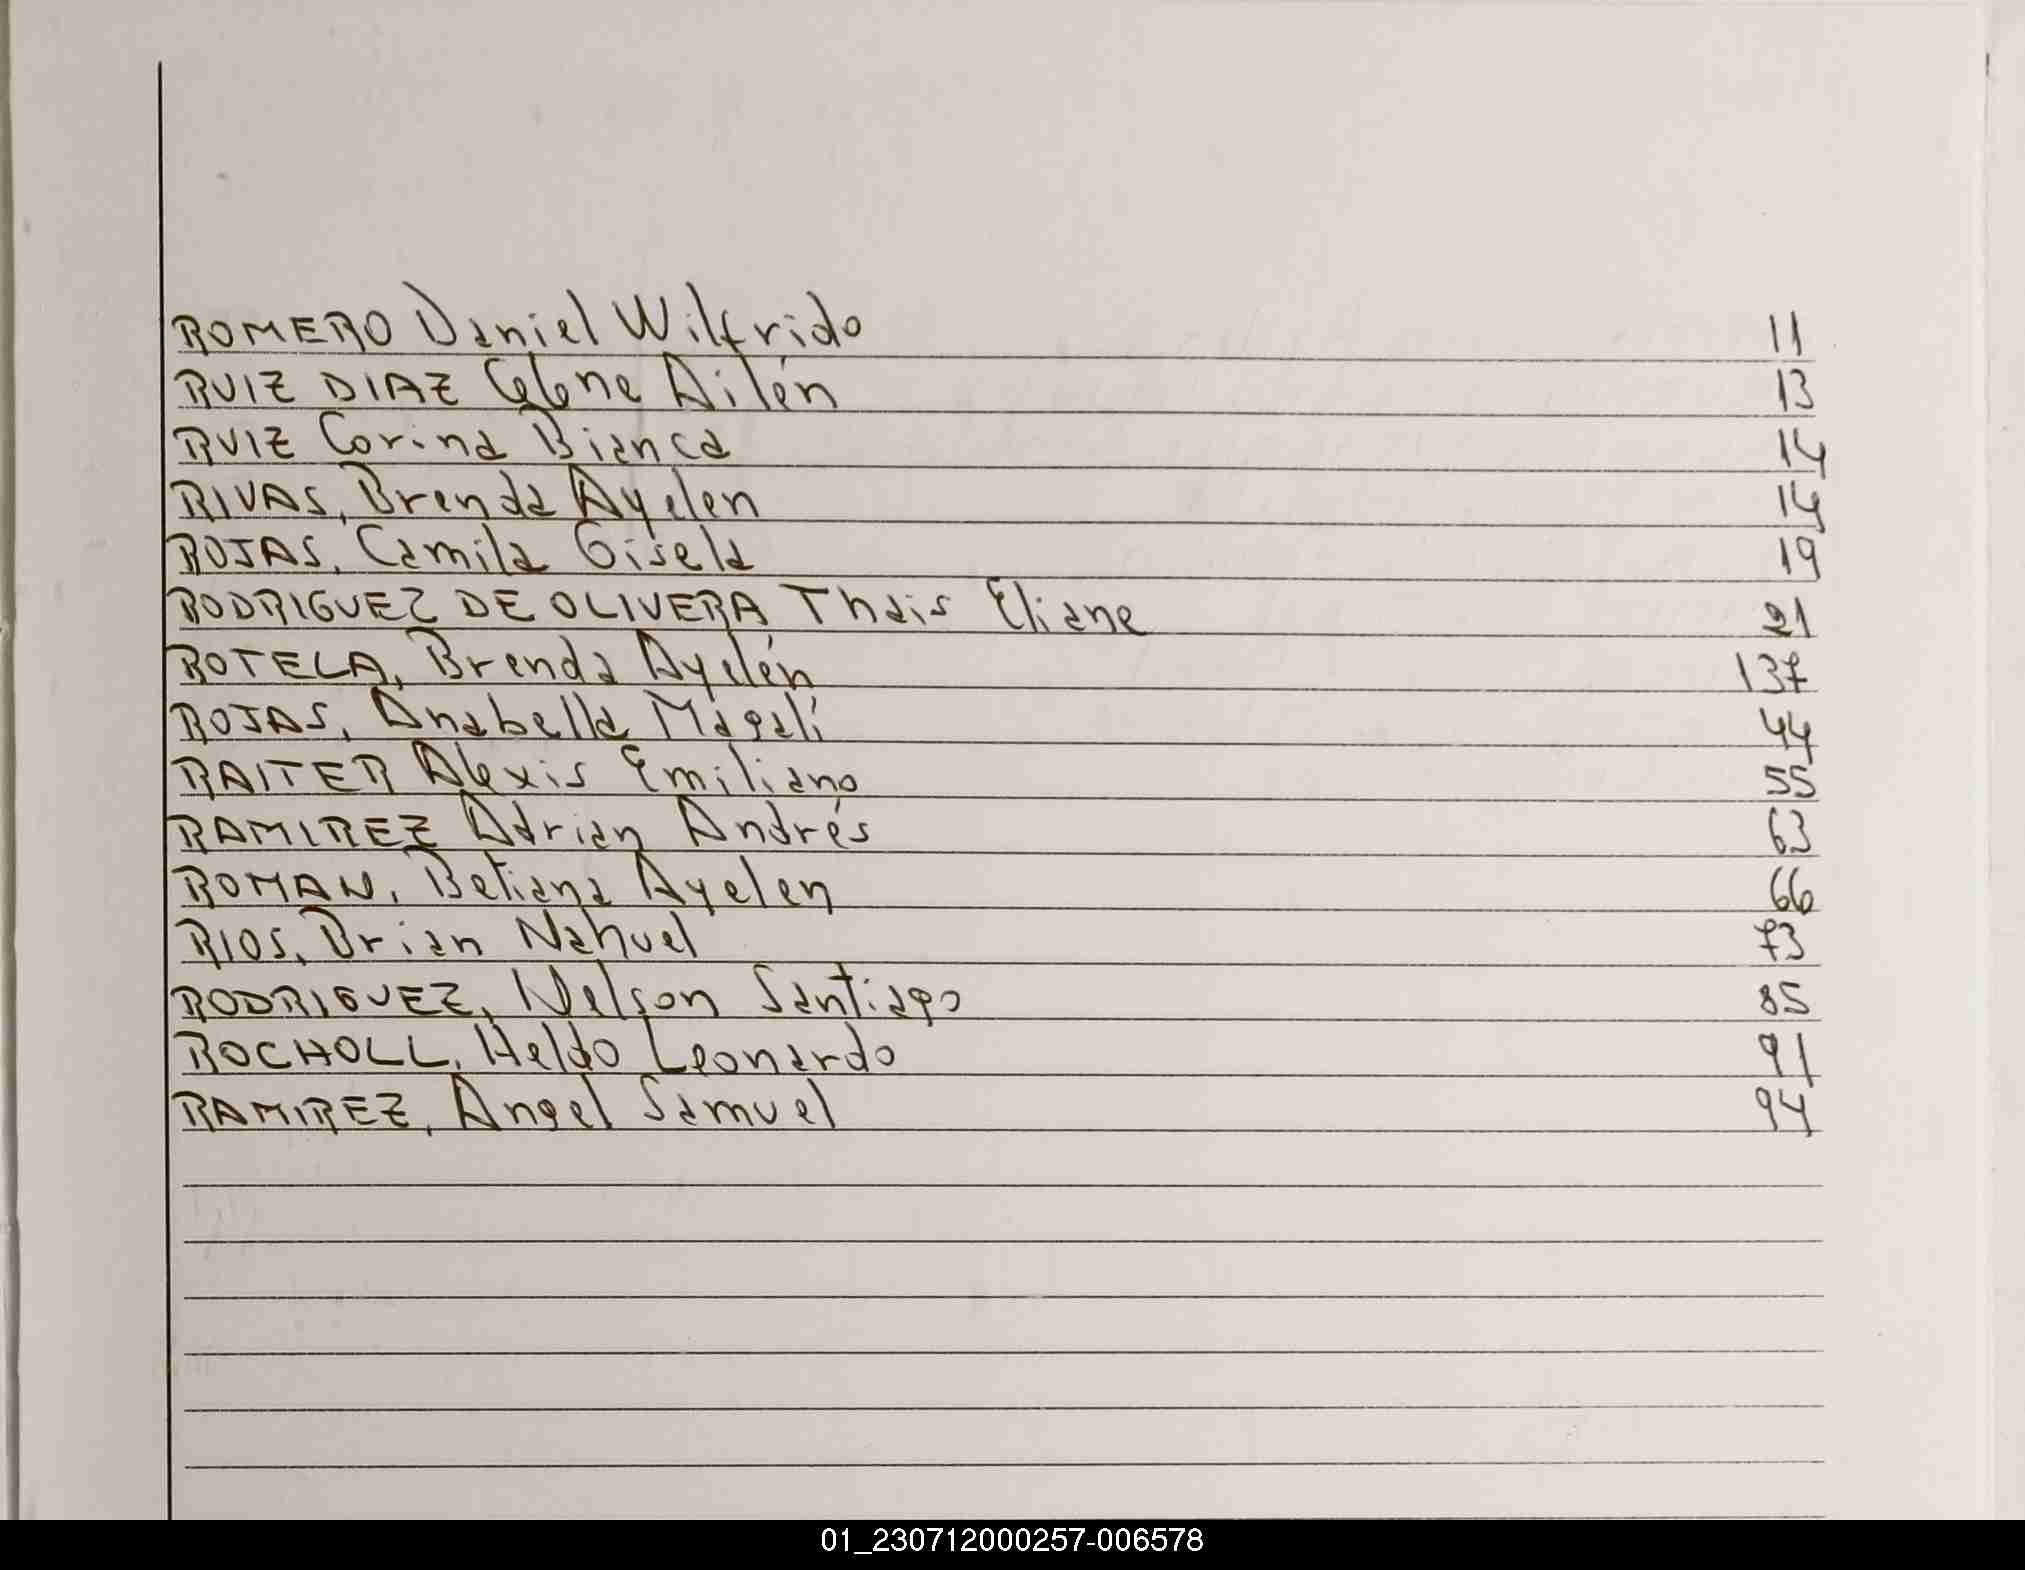 ROMERO Daniel Wilfrido 11
RUIZ DIAZ Celene Ailén 13
RUIZ Corina Bianca 14
RIVAS, Brenda Ayelen 14
ROJAS, Camila Gisela 19
RODRIGUEZ DE OLIVERA Thais Eliane 21
ROTELA, Brenda Ayelén 137
ROJAS, Anabella Magalí 44
RAITER Alexis Emiliano 55
RAMIREZ Adrian Andrés 63
ROMAN, Betiana Ayelen 66
RIOS, Brian Nahuel 73
RODRIGUEZ, Nelson Santiago 85
ROCHOLL, Heldo Leonardo 91
RAMIREZ, Angel Samuel 94
01_230712000257-006578